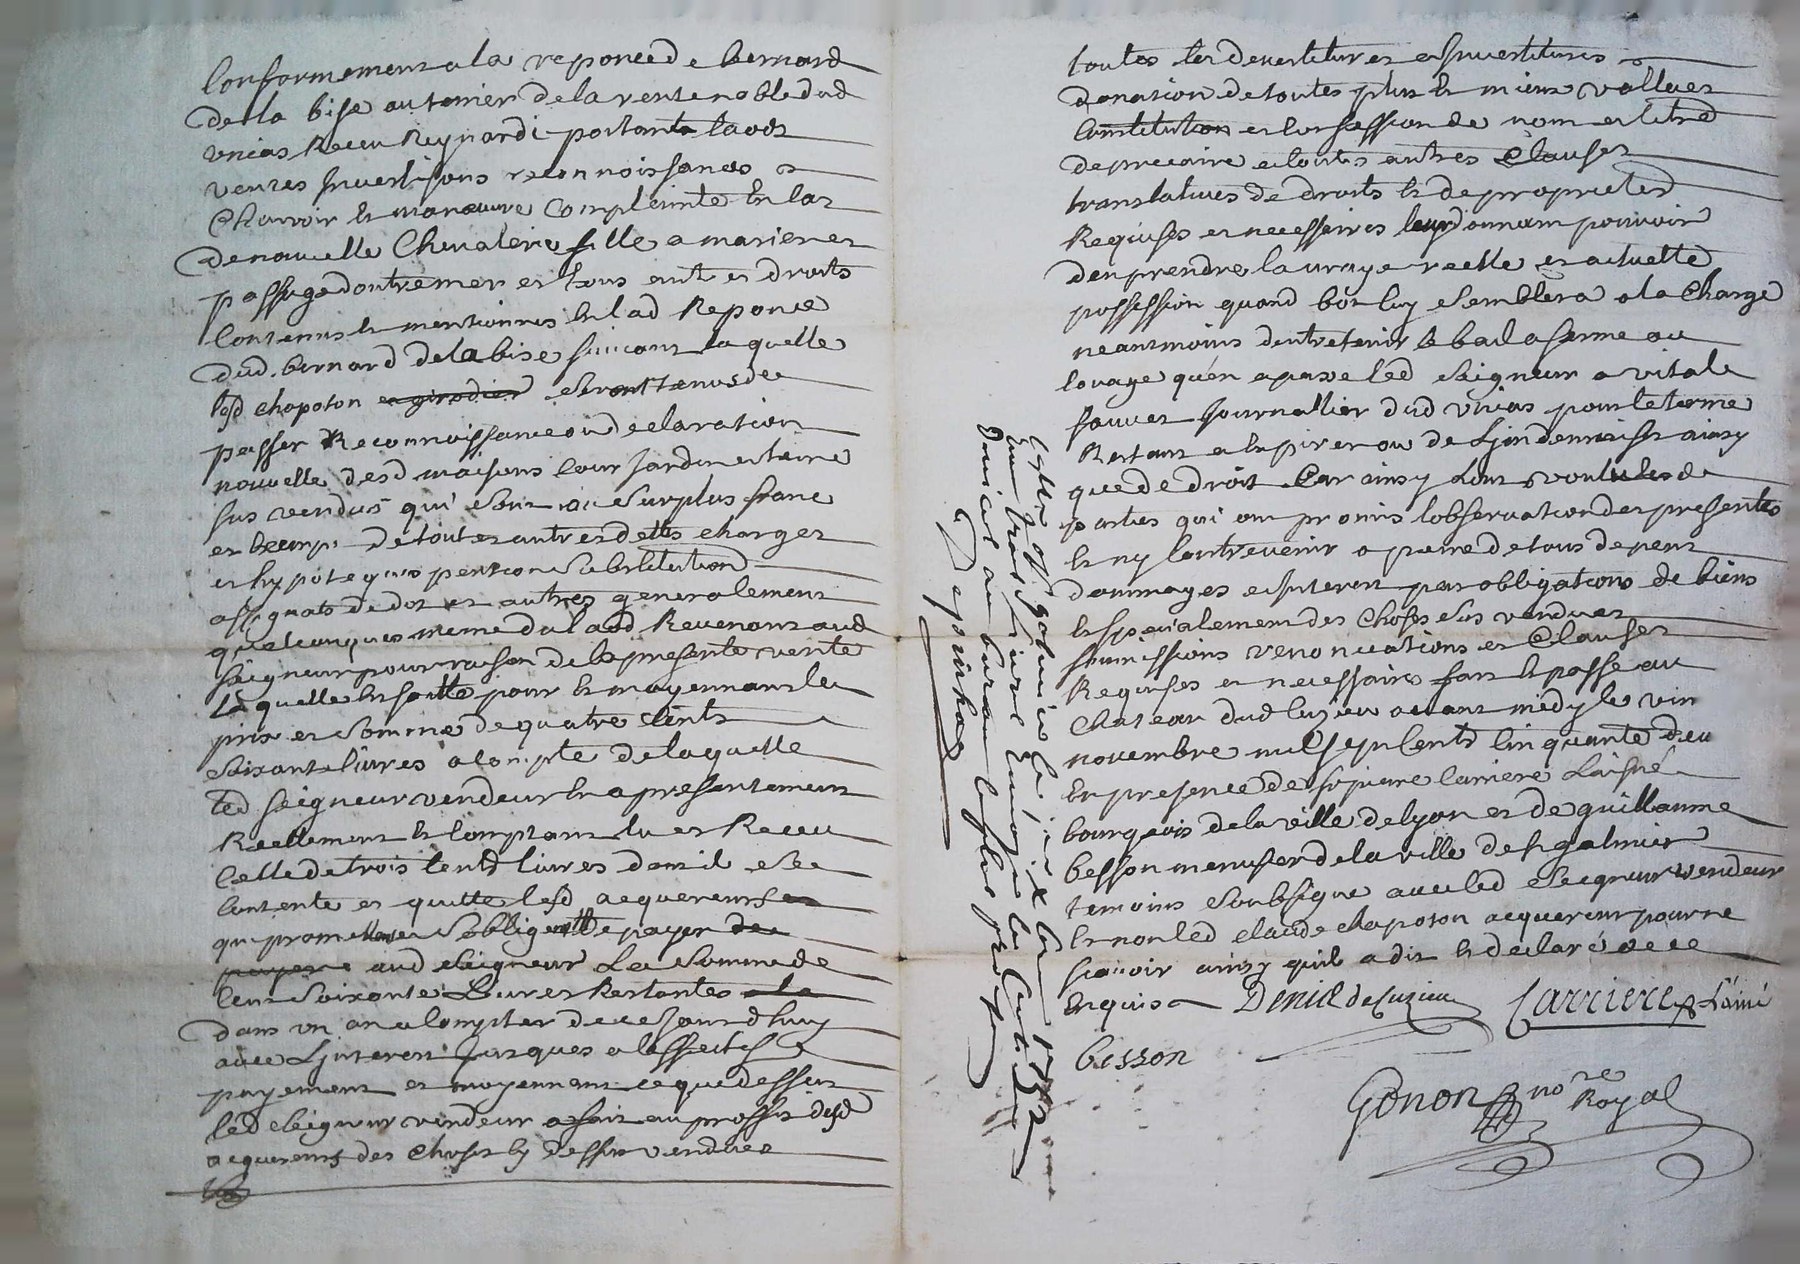 Conformement a la reponce de bernard
de la bise au terrier de la rente noble dud
unias Receu Reynardi portants laods
ventes Investisons reconnoissances
Charroir et manoeuvre complainte En cas
de nouvelle Chevalerie fille a marier et
passage doutremer et tous cult et droits
Contenus et mentionnés En lad Reponce
dud. bernard de la bise suivant laquelle
lesd chapoton et girodier seront tenus de
passer Reconnoissance ou declaration
nouvelle desd maisons Cour Jardin et terre
sus vendus qui sont au surplus franc
et Exemp de toutes autres dettes charges
et hypoteques pention substitution
assignats de dot et autres generalement
quelconques meme du laod Revenant aud
seigneur pour raison de la presente vente
Laquelle Est faitte pour et moyennant le
prix et somme de quatre Cents
soixante livres a Compte de laquelle
led seigneur vendeur En a presentement
Reellement et Comptant eu et Receu
Celle de trois Cents livres dont il se
Contente et quitte lesd acquereurs et
qui promettent et sobligent de payer de
payer aud seigneur La somme de
Cent soixante Livres Restantes a la
dans un an a Compter de ce Jourdhuy
avec Linterest Jusques a leffectif
payement et moyennant ce que dessus
led seigneur vendeur a fait au proffit desd
acquereurs des Choses cy dessus vendues
toutes les devestitures Investitures
donation de toutes plus et mieux vallues
Constitution et Confession de nom et titre
de precaire et toutes autres Clauses
translatives de droits et de proprieté
Requises et necessaires leur donnant pouvoir
den prendre la vraye reelle et actuelle
possession quand bon luy semblera a la Charge
neantmoins dentretenir le bail a ferme ou
louage quen a passé led seigneur a vitale
Journallier dud unias pour le terme
Restant a Expirer ou de Lindemniser ainsy
que de droit Car ainsy Lont voulu les
parties qui ont promis lobservation des presentes
et ny Contrevenir a peine de tous depens
dommages et Interest par obligations de biens
et specialement des Choses sus vendues
soumissions renonciations et Clauses
Requises et necessaires fait et passé au
Chateau dud Cuzieu avant midy le vin
novembre mil sept Cents Cinquante deu
En presence de sr pierre Carriere Laisné
bourgeois de la ville de lyon et de guillaume
besson menusier de la ville de st galmier
temoins soubsigné avec led seigneur vendeur
et non led claude chapoton acquereur pour ne
scavoir ainsy quil a dit et declaré de ce
Enquis Denis de Cuzieu Carriere L'ainé
besson
Gonon no re Royal
Depinhac